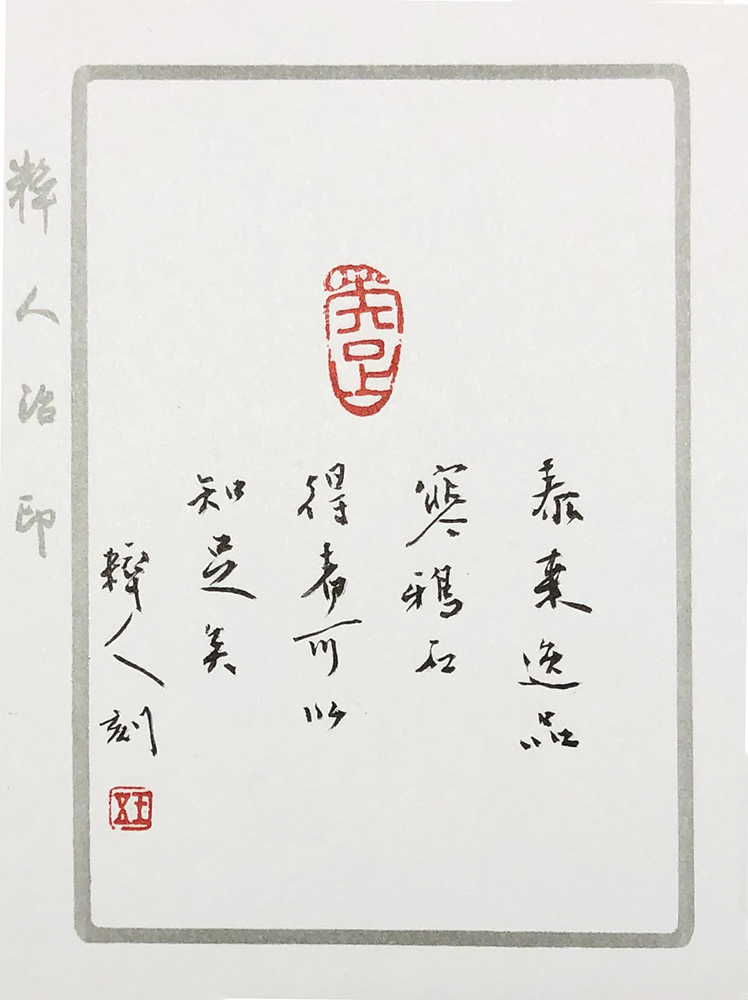 泰来逸品
寒鸦石
得者可以
知足矣
粹人刻
粹人治印